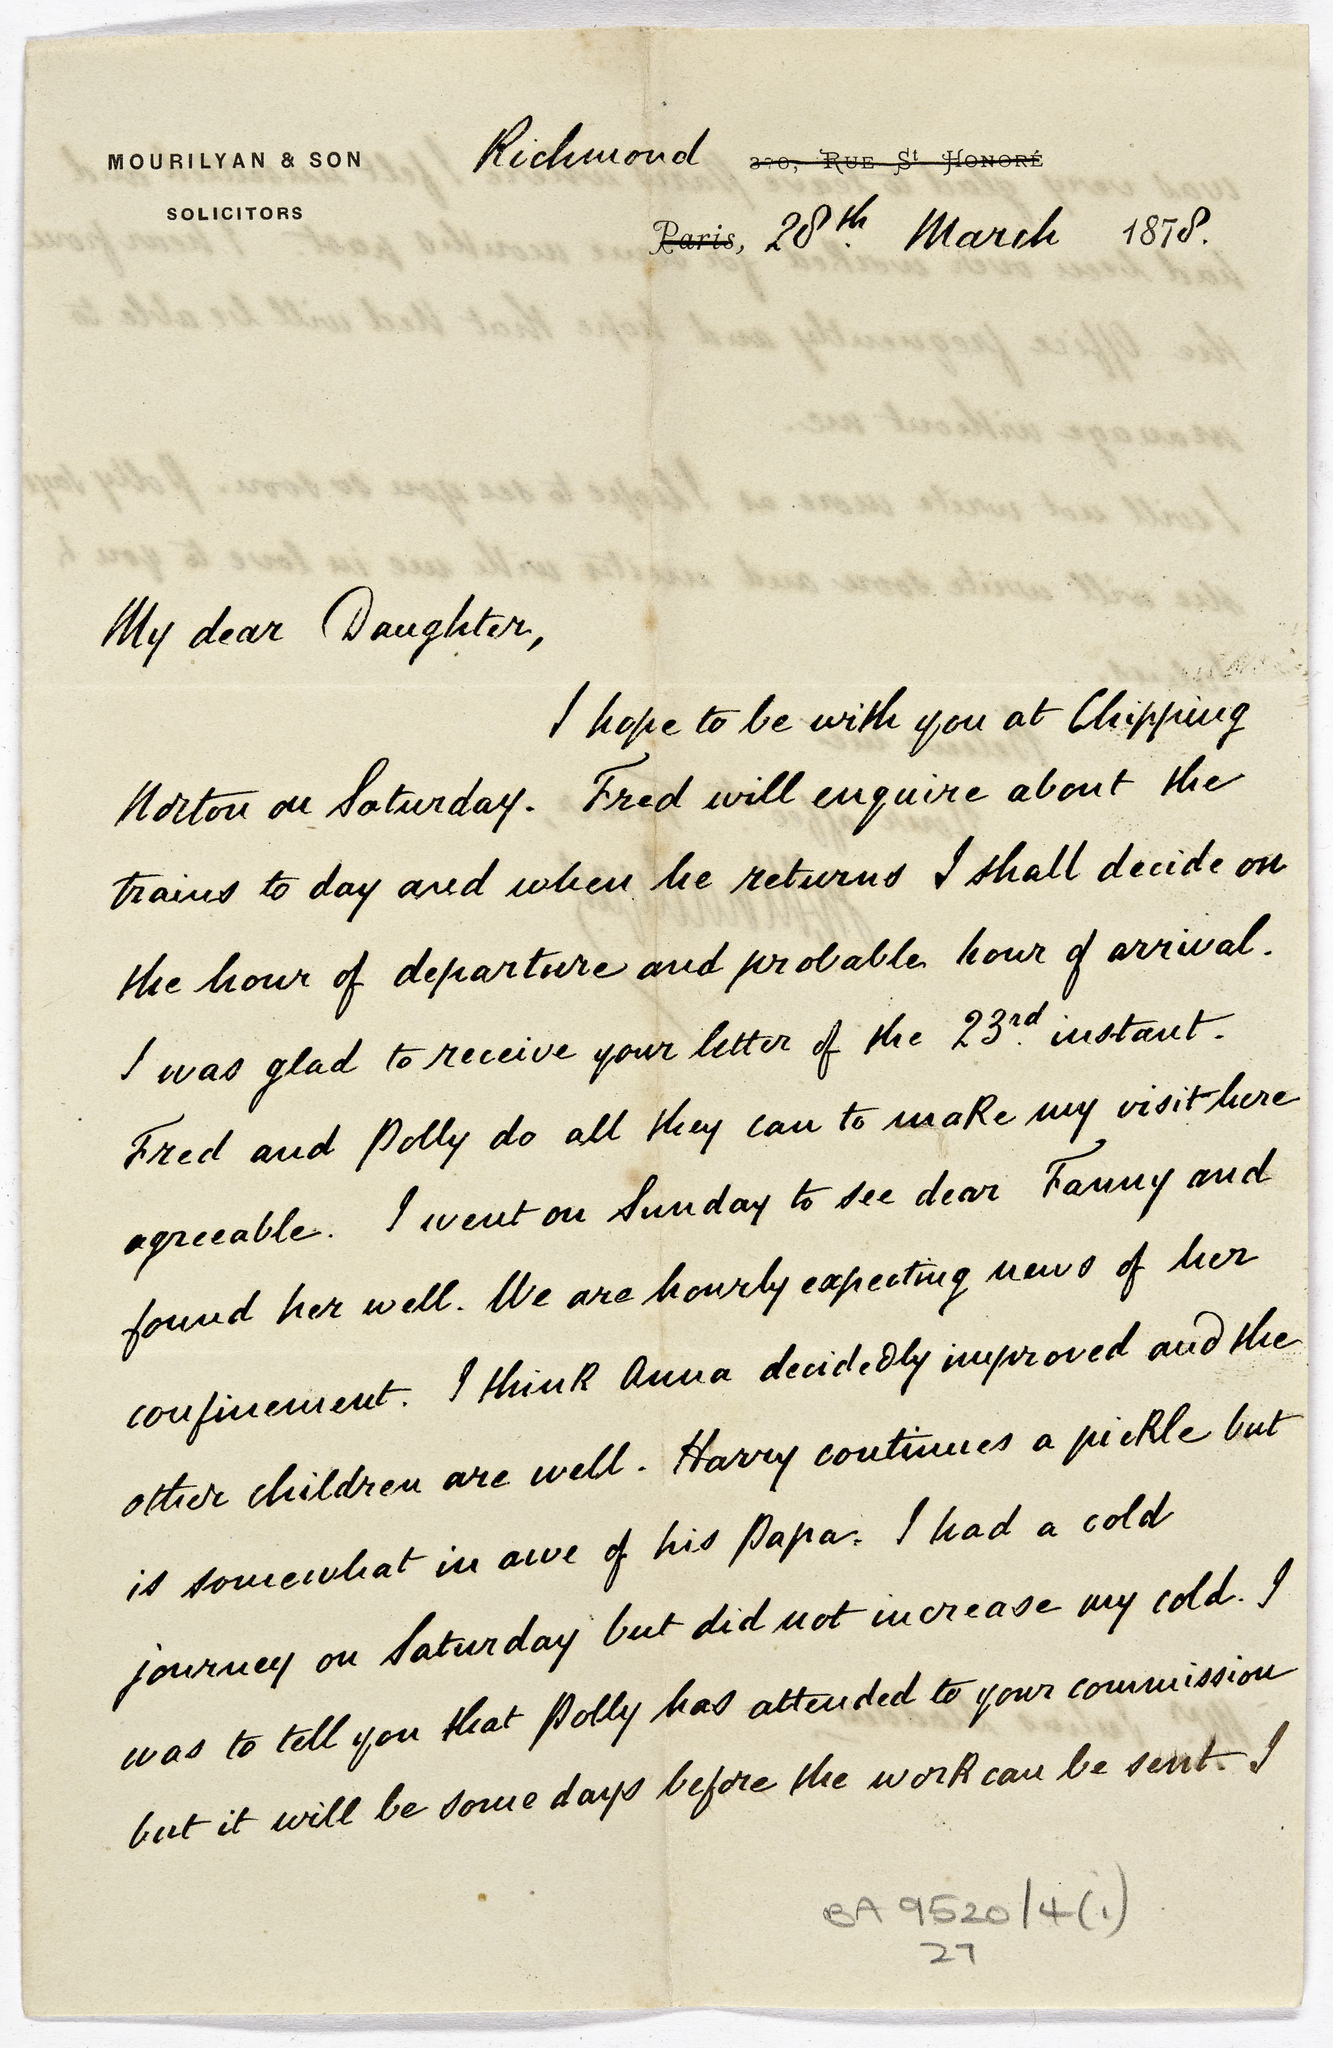 MOURILYAN & SON
SOLICITORS
Richmond 370, RUE St HONORÉ
Paris, 28th March 1878.
My dear Daughter,
I hope to be with you at Chipping
Norton on Saturday. Fred will enquire about the
trains to day and when he returns I shall decide on
the hour of departure and probable hour of arrival.
I was glad to receive your letter of the 23rd instant.
Fred and Polly do all they can to make my visit here
agreeable. I went on Sunday to see dear Fanny and
found her well. We are hourly expecting news of her
confinement. I think Anna decidedly improved and the
other children are well. Harry continues a pickle but
is somewhat in awe of his Papa. I had a cold
journey on Saturday but did not increase my cold. I
was to tell you that Polly has attended to your commission
but it will be some days before the work can be sent. I
BA 9520/4(i)
27